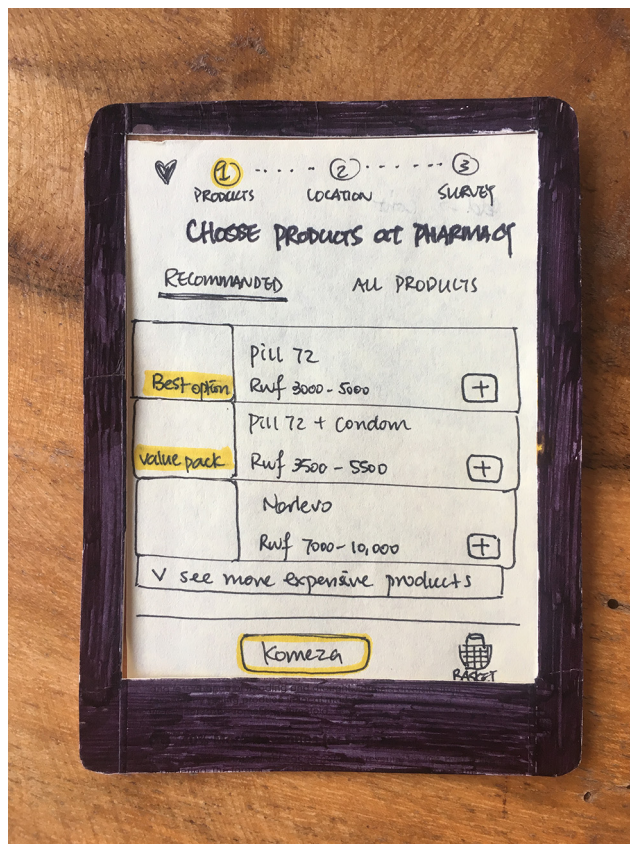 1 2 3
PRODUCTS LOCATION SURVEY
CHOOSE PRODUCTS at PHARMACY
RECOMMANDED ALL PRODUCTS
Pill 72
Best option Rwf 3000 - 5000 +
Pill 72 + Condom
value pack Rwf 3500 - 5500 +
Norlevo
Rwf 7000 - 10,000 +
V see more expensive products
Komeza
BASKET